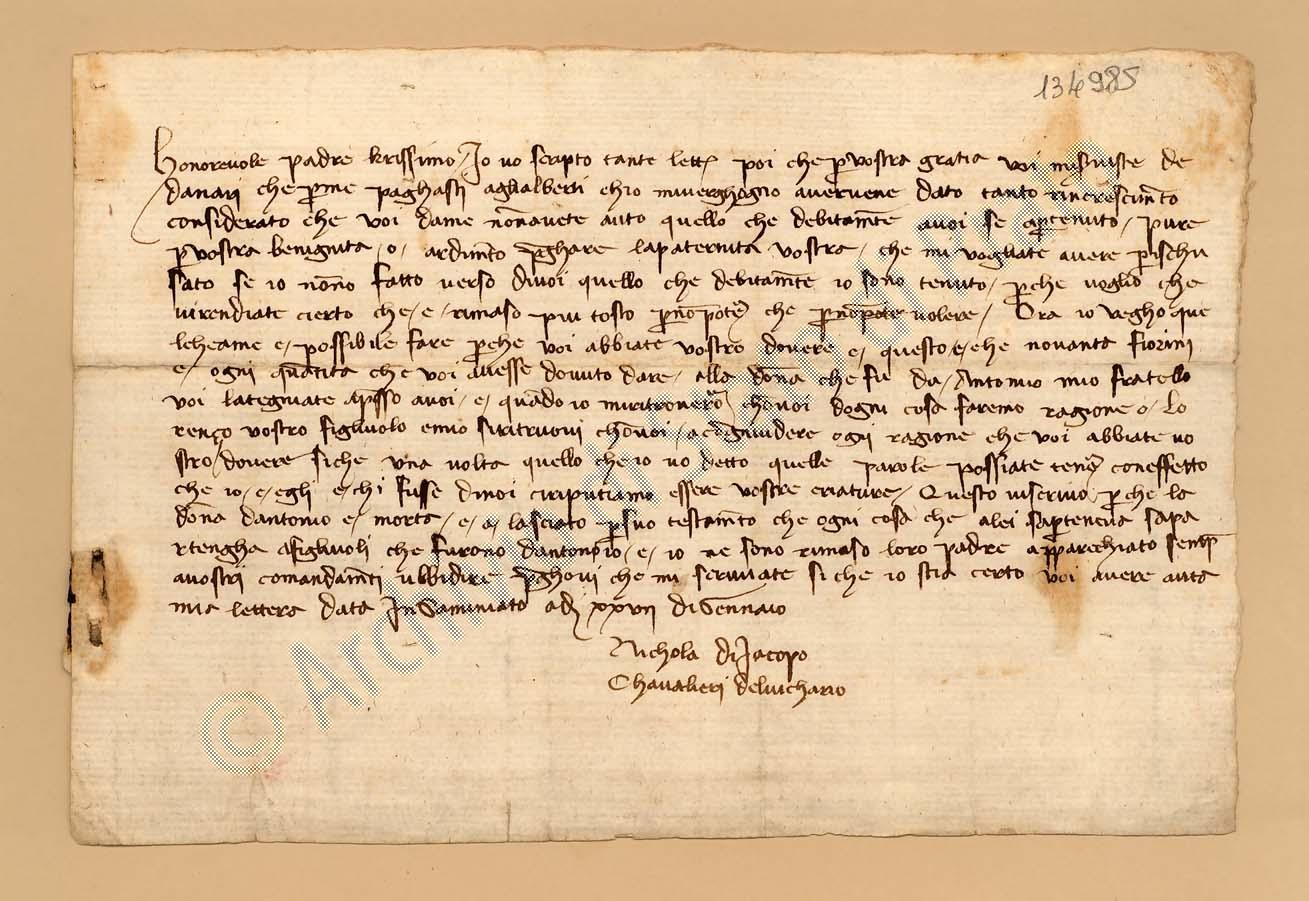 134985
Honorevole padre krissimo / Io vo scripto tante lettr poi che p vostra gratia voi mi serviste de
danari che p me paghasti agli alberti ch io mi verghogno avervene dato tanto rincrescimto
considerato che voi dame nonavete auto quello che debitamte avoi se aptenuto / pure
p vostra benignita / o / ardimto pghare lapaternita vostra / che mi vogliate avere p ischu
sato se io nono fatto verso divoi quello che debitamte io sono tenuto / pche voglio che
vi rendiate cierto che / e / rimaso piu tosto p no potē che p no volere / Ora io vegho que
lcheame e / possibile fare pche voi abbiate vostro dovere e / questo / e / che novanta fiorini
e / ogni quatita che voi avesse dovuto dare / alla dona che fu da / Antonio mio fratello
voi lategniate apsso avoi / e / quado io mi ritronero chovoi dogni cosa faremo ragione o / lo
renço vostro figlivolo emio si ritruovi chovoi / a ogni ragione che voi abbiate vo
stro / dovere siche una volta quello che io vo detto quelle parole possiate tenē coneffetto
che io / e / egli e / chi fusse dinoi ci riputiamo essere vostre criature / Questo viscrivo pche la
dona dantonio e / morta / e / a / lasciato p suo testamto che ogni cosa che alei sapteneva sapa
rtengha afiglivoli che furono dantonio / e / io ne sono rimaso loro padre apparecchiato semp
avostri comandamti ubbidire pghovi che mi scriviate si che io stia certo voi avere auta
mia lettera data In Saminiato adi xxvii di Gennaio
Nichola di Iacopo
Chavalieri delvichario
© Archivio di Stato